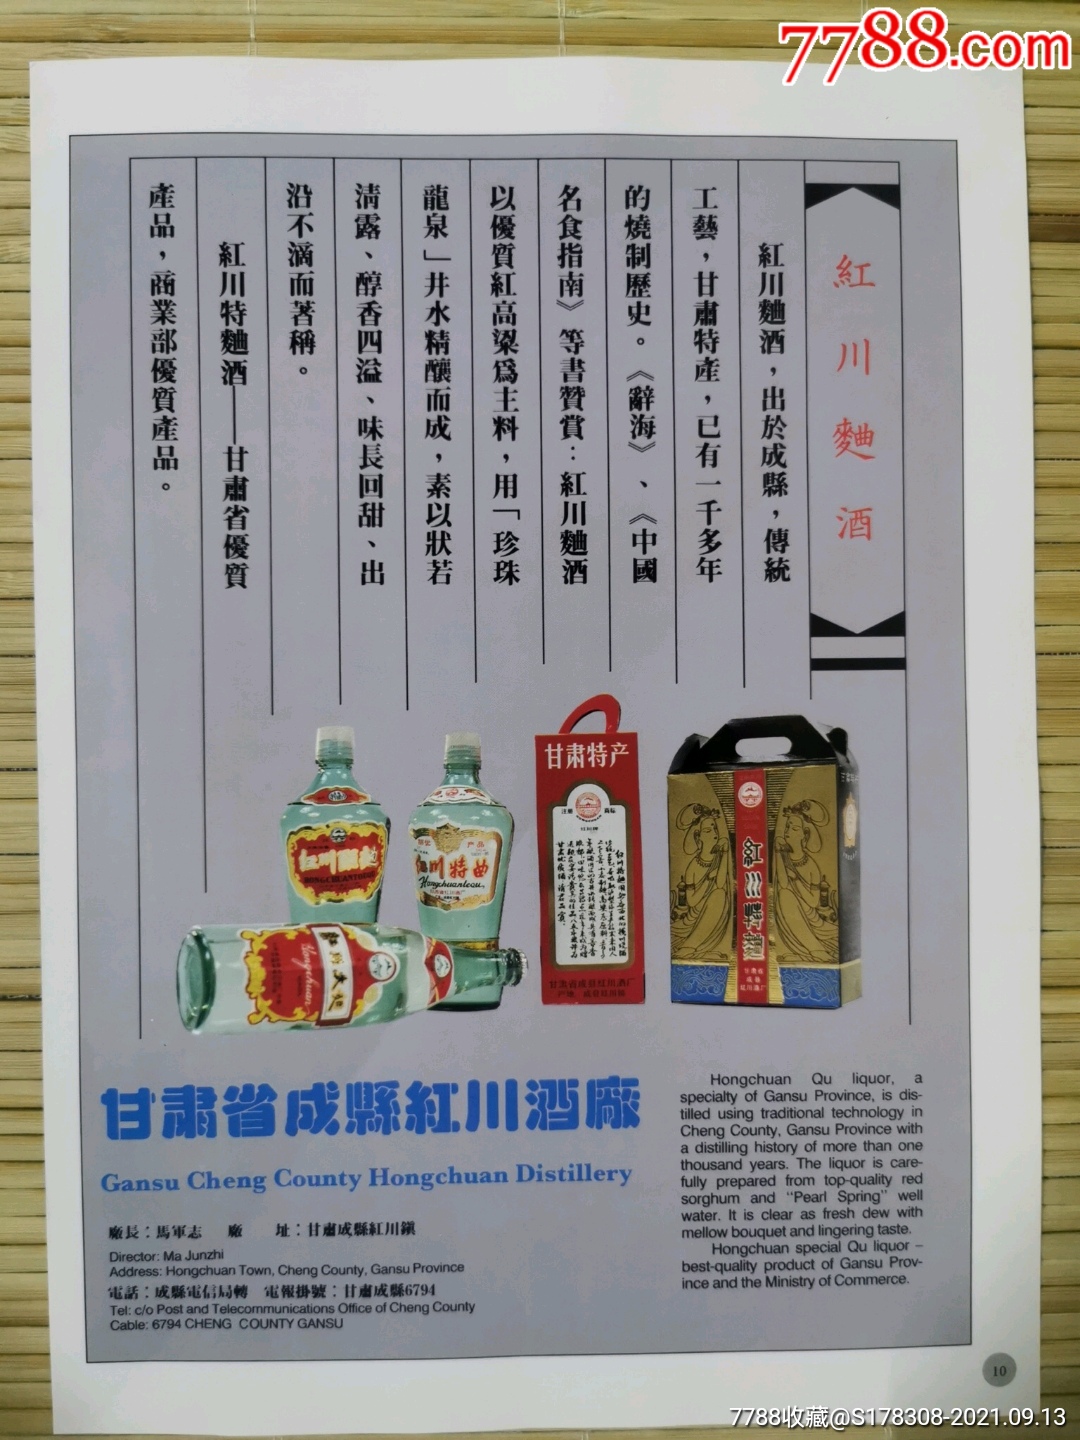 7788.com
紅川麯酒
紅川麯酒，出於成縣，傳統
工藝，甘肅特產，已有一千多年
的燒制歷史。《辭海》、《中國
名食指南》等書贊賞：紅川麯酒
以優質紅高粱爲主料，用「珍珠
龍泉」井水精釀而成，素以狀若
清露、醇香四溢、味長回甜、出
沿不滴而著稱。
紅川特麯酒——甘肅省優質
產品，商業部優質產品。
甘肃特产
红川特曲
Hongchuantequ
甘肃省成县红川酒厂
甘肅省成縣紅川酒廠
Gansu Cheng County Hongchuan Distillery
廠長：馬軍志 廠 址：甘肅成縣紅川鎮
Director: Ma Junzhi
Address: Hongchuan Town, Cheng County, Gansu Province
電話：成縣電信局轉 電報掛號：甘肅成縣6794
Tel: c/o Post and Telecommunications Office of Cheng County
Cable: 6794 CHENG COUNTY GANSU
Hongchuan Qu liquor, a
specialty of Gansu Province, is dis-
tilled using traditional technology in
Cheng County, Gansu Province with
a distilling history of more than one
thousand years. The liquor is care-
fully prepared from top-quality red
sorghum and "Pearl Spring" well
water. It is clear as fresh dew with
mellow bouquet and lingering taste.
Hongchuan special Qu liquor –
best-quality product of Gansu Prov-
ince and the Ministry of Commerce.
10
7788收藏@S178308-2021.09.13